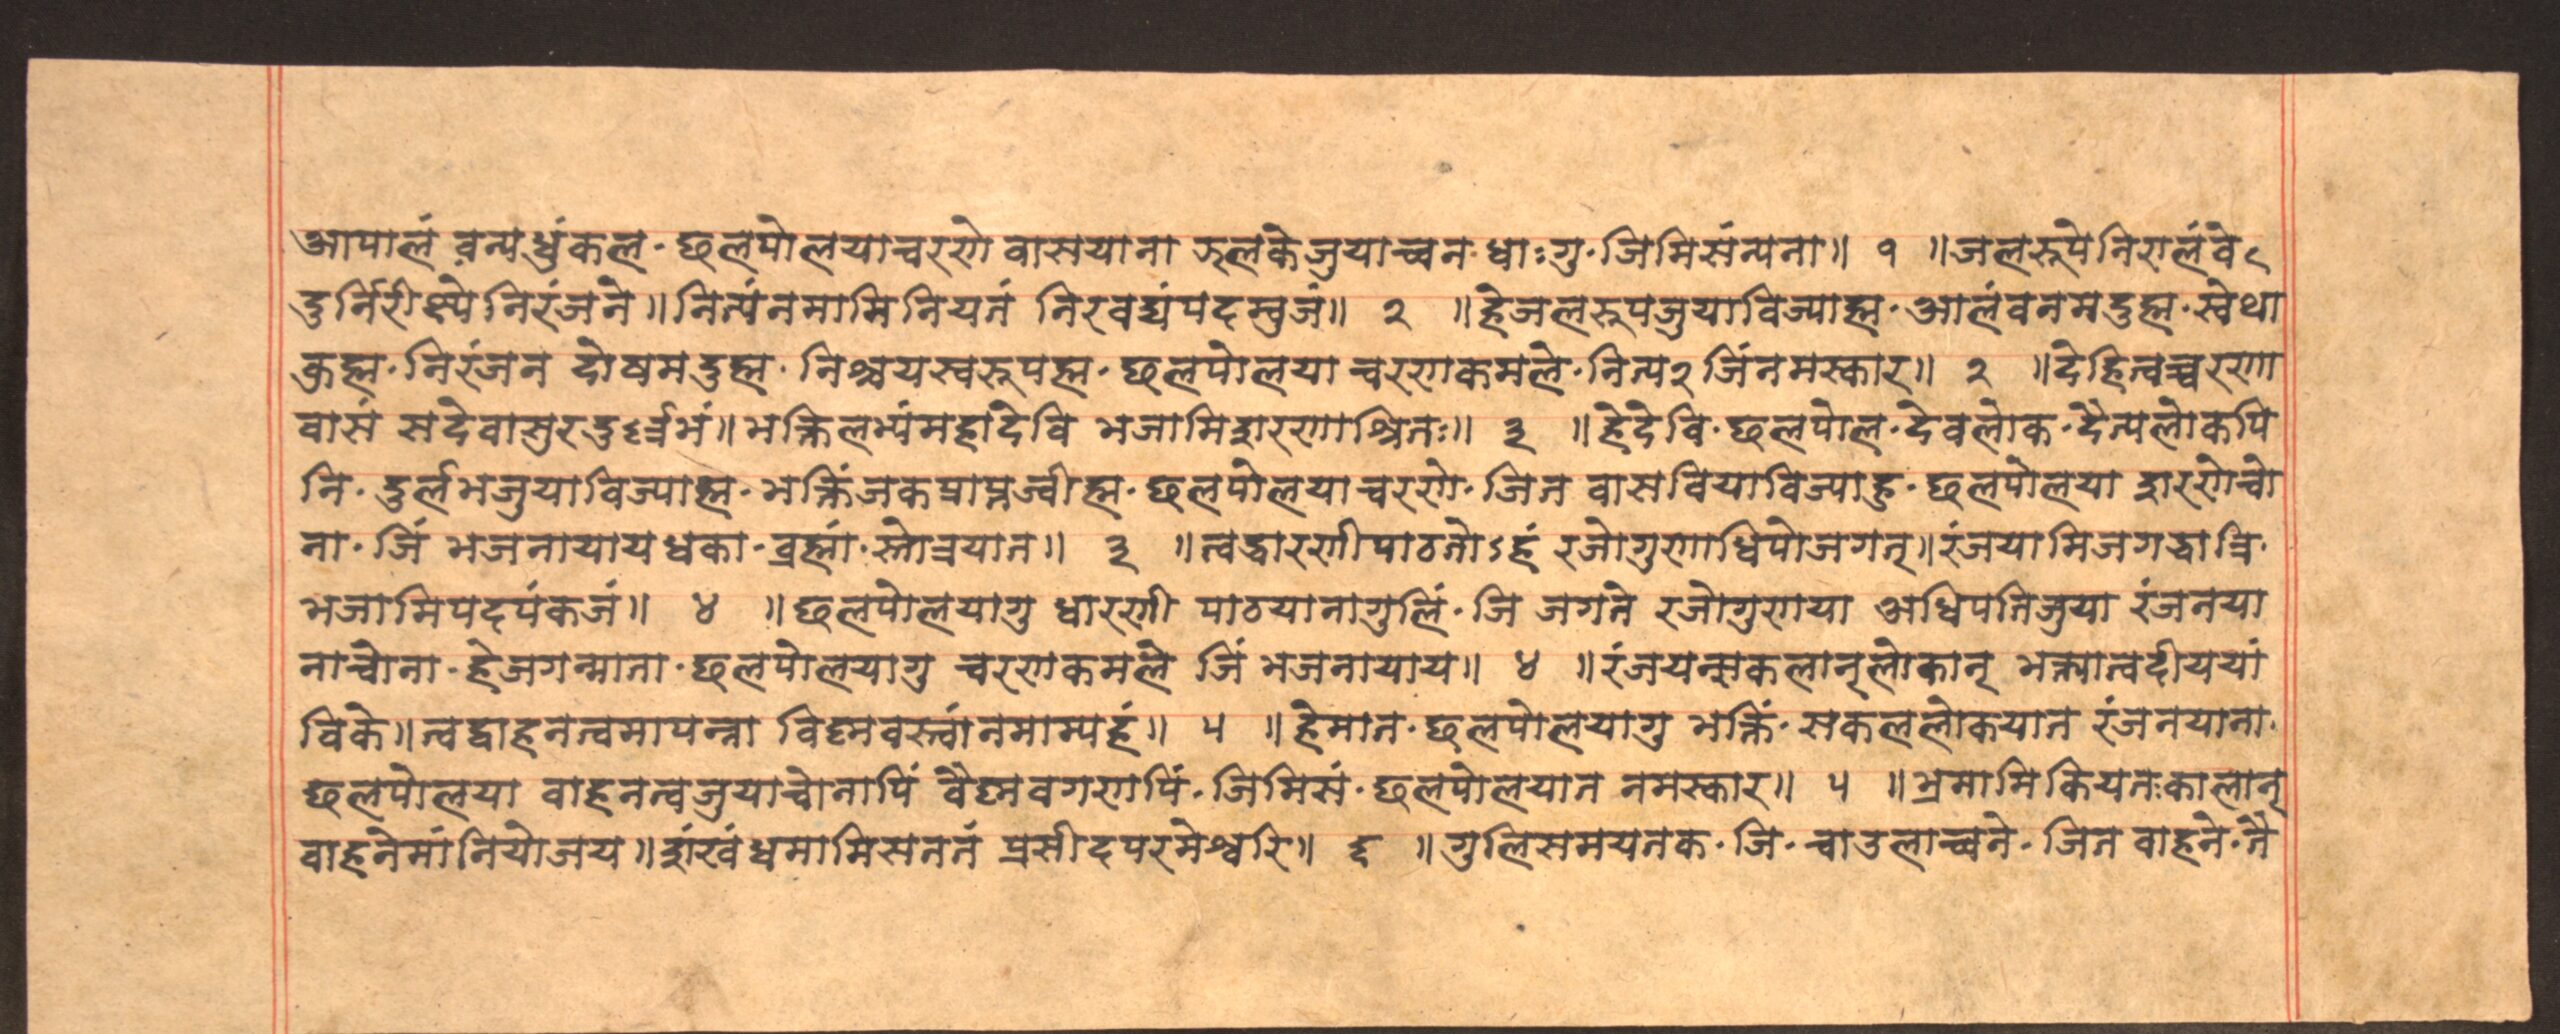 आपालं व़न्यधुंकल· छलपोलयाचरणे वासयाना ऊलकेजुयाच्वन· धाःगु· जिमिसंन्यना॥ १ ॥जलरूपेनिरालंवे९
दुर्निरीक्ष्येनिरंजने॥नित्यंनमामिनियतं निरवद्यंपदम्वुजं॥ २ ॥हेजलरूपजुयाविज्याह्म· आलंवनमदुह्म· स्वेथा
कुह्म· निरंजन दोषमदुह्म· निश्चयस्वरूपह्म· छलपोलया चरणकमले· नित्य२ जिंनमस्कार॥ २ ॥देहित्वच्चरणा
वासं सदेवासुरदुर्ल्लभं॥भक्तिलभ्यंमहादेवि भजामिशरणाश्रितः॥ ३ ॥हेदेवि· छलपोल· देवलोक· दैत्यलोकपि
नि· दुर्लभजुयाविज्याह्म· भक्तिंजकप्राप्तज्वीह्म· छलपोलयाचरणे· जित वासवियाविज्याहु· छलपोलया शरणेच्वो
ना· जिं भजनायायधका· व्रह्मां· स्तोत्रयात॥ ३ ॥त्वद्धारणीपाठतोऽहं रजोगुणाधिपोजगत्॥रंजयामिजगद्धात्रि·
भजामिपदपंकजं॥ ४ ॥छलपोलयागु धारणी पाठयानागुलिं· जि जगते रजोगुणया अधिपतिजुया रंजनया
नाच्वोना· हेजगन्माता· छलपोलयागु चरणकमले जिं भजनायाय॥ ४ ॥रंजयन्सकलान्लोकान् भक्त्यात्वदीययां
विके॥त्वद्वाहनत्वमापन्ना विष्णवस्त्वांनमाम्यहं॥ ५ ॥हेमात· छलपोलयागु भक्तिं· सकललोकयात रंजनयाना·
छलपोलया वाहनत्वजुयाच्वोनापिं वैष्णवगणपिं· जिमिसं· छलपोलयात नमस्कार॥ ५ ॥भ्रमामिकियतःकालान्
वाहनेमांनियोजय॥शंखंधमामिसततं प्रसीदपरमेश्वरि॥ ६ ॥गुलिसमयतक· जि· चाउलाच्वने· जित वाहने· तै